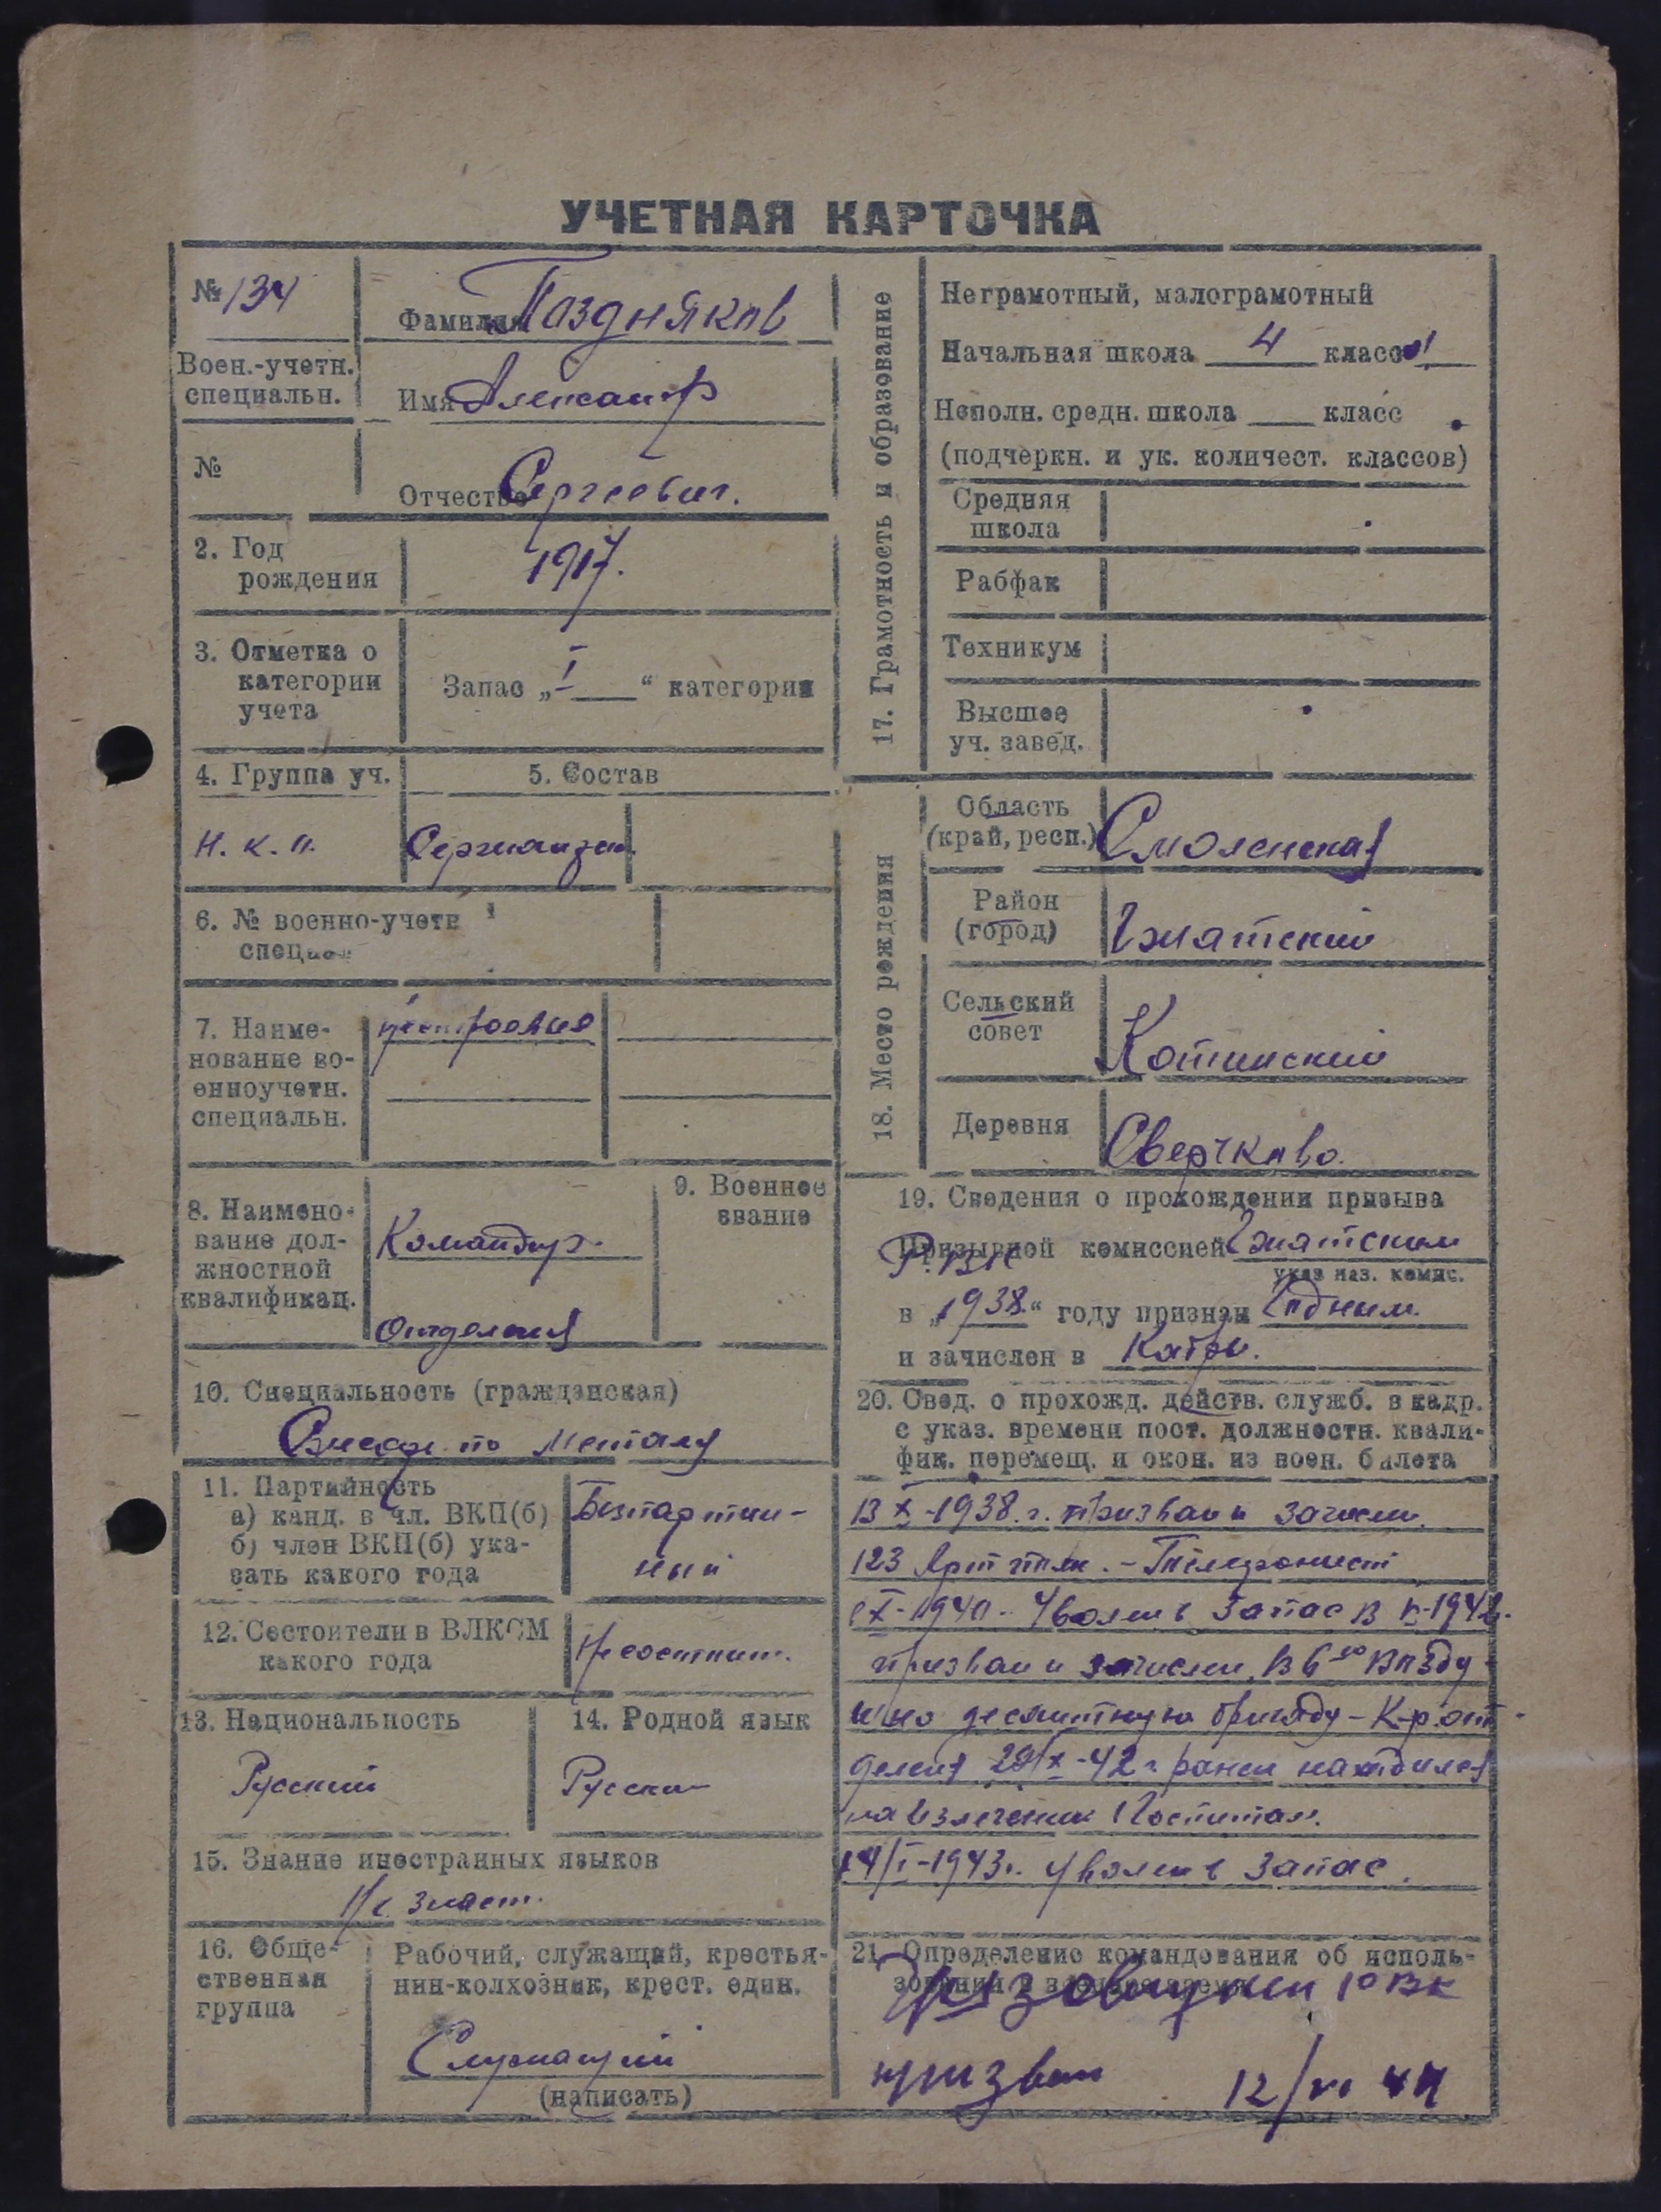 УЧЕТНАЯ КАРТОЧКА
№ 134
Фамилия Поздняков
Воен.-учетн.
специальн.
Имя Александр
№
Отчество Сергеевич.
2. Год
рождения
1917.
3. Отметка о
категории
учета
Запас „I“ категории
4. Группа уч.
5. Состав
Н. К. О.
Сержантск.
6. № военно-учетн
специ
7. Наиме-
нование во-
енноучетн.
специальн.
8. Наимено-
вание дол-
жностной
квалификац.
Командир.
Отделения
9. Военное
звание
10. Специальность (гражданская)
по Металу
11. Партийность
а) канд. в чл. ВКП(б)
б) член ВКП(б) ука-
зать какого года
Безпартий-
ный
12. Состоит ели в ВЛКСМ
какого года
Не состоит.
13. Национальность
Русский
14. Родной язык
Русский
15. Знание иностранных языков
Не знает.
16. Обще-
ственная
группа
Рабочий, служащий, крестья-
нин-колхозник, крест. един.
Служащий
(написать)
17. Грамотность и образование
Неграмотный, малограмотный
Начальная школа 4 класс
Неполн. средн. школа ___ класс
(подчеркн. и ук. количест. классов)
Средняя
школа
Рабфак
Техникум
Высшее
уч. завед.
18. Место рождения
Область
(край, респ.)
Смоленская
Район
(город)
Гжатский
Сельский
совет
Котинский
Деревня
Сверчково.
19. Сведения о прохождении призыва
Призывной комиссией Гжатским
Р.ВК
указ наз. комис.
в „1938.“ году признан Годным.
и зачислен в Кадры.
20. Свед. о прохожд. действ. служб. в кадр.
с указ. времени пост. должностн. квали-
фик. перемещ. и окон. из воен. билета
В X-1938. г. призван и зачислен
123 Арт полк. - Телефонист
X-1940.. Уволен в Запас В
призван и зачислен В 6ую Возду-
шно десантную бригаду - К-р от-
деления 29/X-42 г ранен находился
на излечении Госпитал.
14/I-1943г. Уволен в Запас.
21. Определение командования об исполь-
зовании в военное время
РВК
призван 12/VI 44